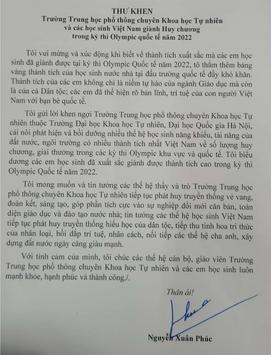 THƯ KHEN
Trường Trung học phổ thông chuyên Khoa học Tự nhiên
và các học sinh Việt Nam giành Huy chương
trong kỳ thi Olympic quốc tế năm 2022
Tôi vui mừng và xúc động khi biết về thành tích xuất sắc mà các em học
sinh đã giành được tại kỳ thi Olympic Quốc tế năm 2022, tô thắm thêm bảng
vàng thành tích của học sinh nước nhà tại đấu trường quốc tế đầy khó khăn.
Thành tích của các em không chỉ là niềm tự hào của ngành Giáo dục mà còn
là của cả Dân tộc; các em đã thể hiện rõ bản lĩnh, trí tuệ của con người Việt
Nam với bạn bè quốc tế.
Tôi gửi lời khen ngợi Trường Trung học phổ thông chuyên Khoa học Tự
nhiên thuộc Trường Đại học Khoa học Tự nhiên, Đại học Quốc gia Hà Nội,
cái nôi phát hiện và bồi dưỡng nhiều thế hệ học sinh năng khiếu, tài năng của
đất nước, ngôi trường có nhiều thành tích nhất Việt Nam về số lượng huy
chương, giải thưởng trong các kỳ thi Olympic khu vực và quốc tế. Tôi biểu
dương các em học sinh đã xuất sắc giành được thành tích cao trong kỳ thi
Olympic Quốc tế năm 2022.
Tôi mong muốn và tin tưởng các thế hệ thầy và trò Trường Trung học
phổ thông chuyên Khoa học Tự nhiên tiếp tục phát huy truyền thống vẻ vang,
đoàn kết, sáng tạo, góp phần tích cực vào sự nghiệp đổi mới căn bản, toàn
diện giáo dục và đào tạo nước nhà; tin tưởng các thế hệ học sinh Việt Nam
tiếp tục phát huy truyền thống hiếu học của dân tộc, tiếp thu tinh hoa tri thức
của nhân loại, bồi đắp trí tuệ, nhân cách, nối tiếp các thế hệ cha anh, xây
dựng đất nước ngày càng giàu mạnh.
Với tình cảm của mình, tôi chúc các thế hệ cán bộ, giáo viên Trường
Trung học phổ thông chuyên Khoa học Tự nhiên và các em học sinh luôn
mạnh khỏe, hạnh phúc và thành công./.
Thân ái!
Nguyễn Xuân Phúc